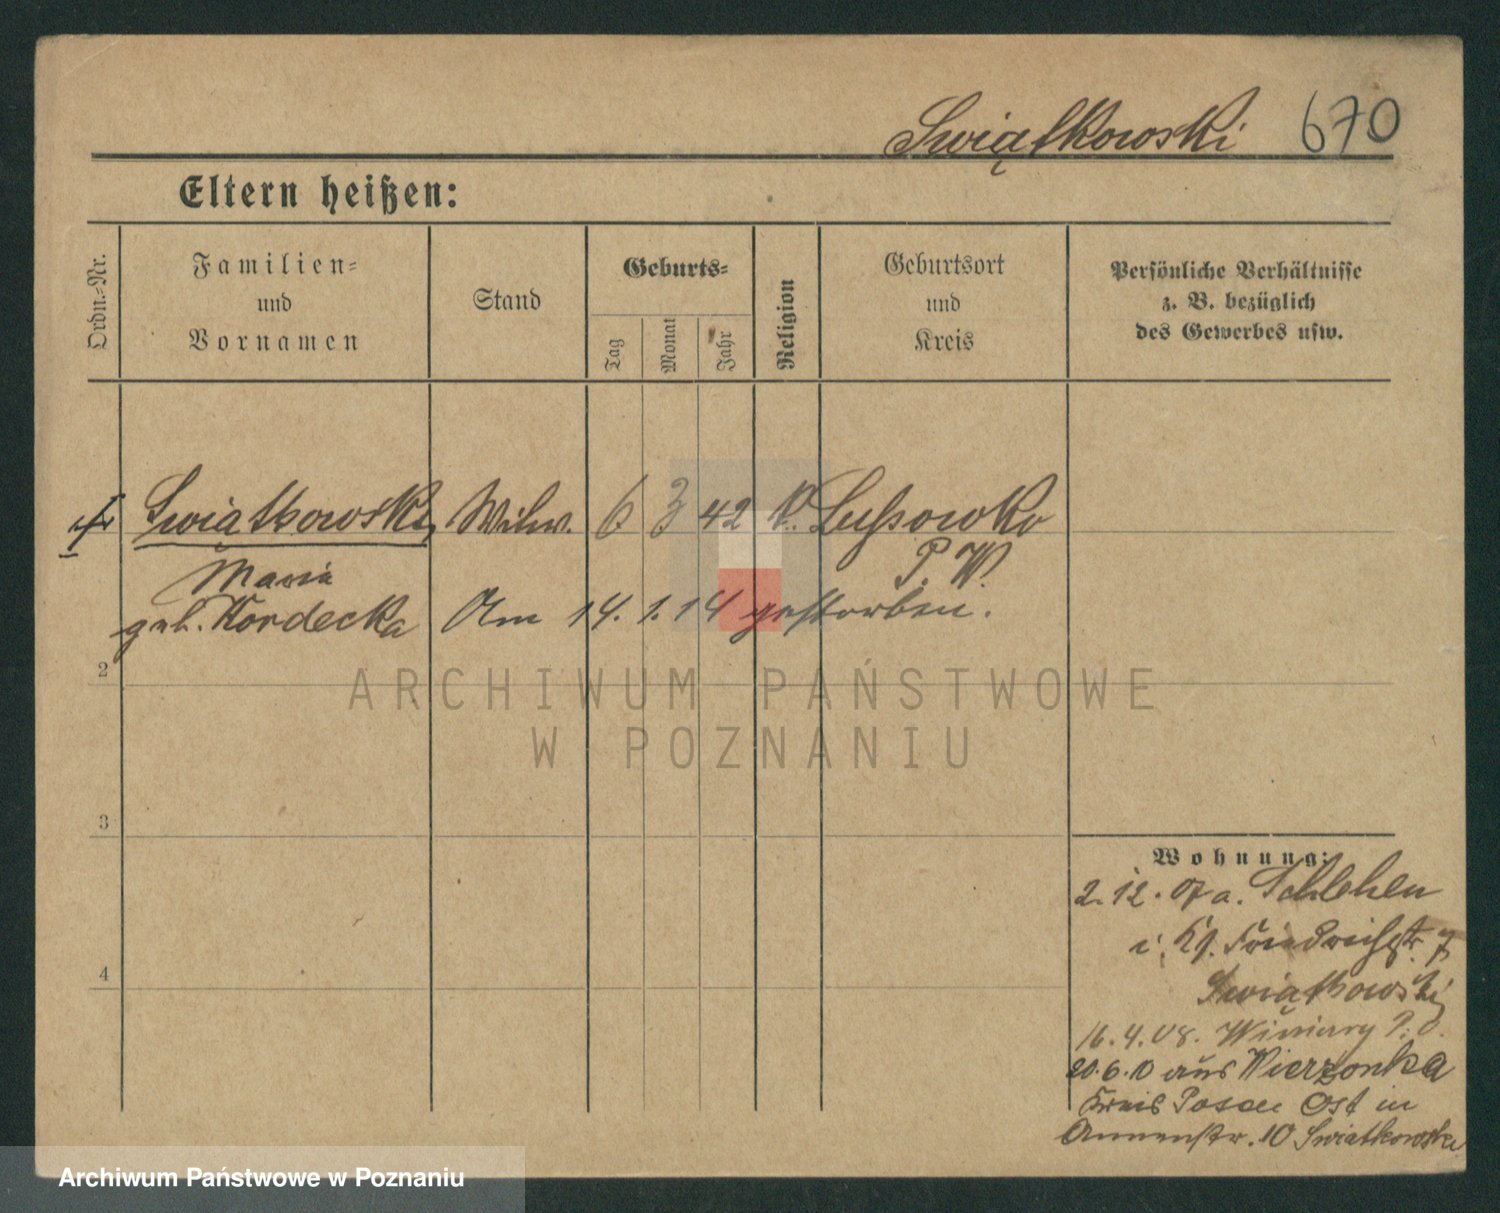 Swiątkowski 670
Eltern heißen:
Ordn.-Nr.
Familien-
und
Vornamen
Stand
Geburts-
Tag
Monat
Jahr
Religion
Geburtsort
und
Kreis
Persönliche Verhältnisse
z. B. bezüglich
des Gewerbes usw.
Swiątkowski, Witw. 6 3 42 k. Lussowko
Maria P. W.
geb. Kordecka Am 14. 1. 14 gestorben.
2
3
4
ARCHIWUM PAŃSTWOWE
W POZNANIU
Wohnung:
2. 12. 07 a. Schlehen
i. Kl. Friedrichstr. 7
Swiątkowski
16. 4. 08. Winiary P. O.
20. 6. 10 aus Wierzonka
Kreis Posen Ost in
Annenstr. 10 Swiatkowski
Archiwum Państwowe w Poznaniu